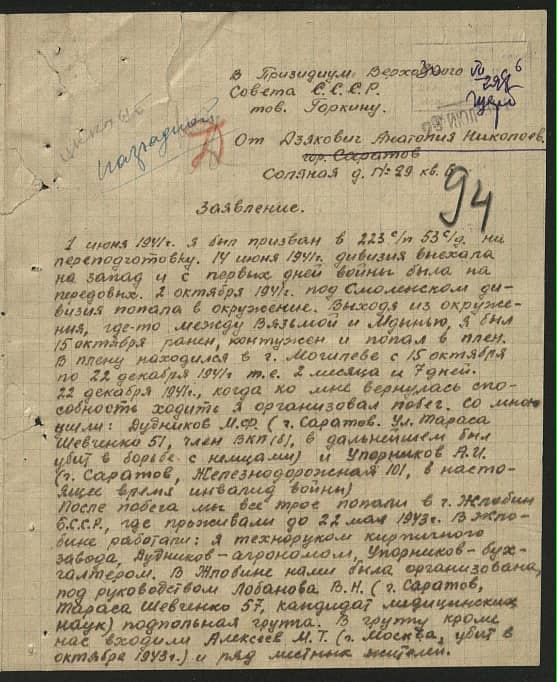 В Призидиум Верховного
Совета С.С.С.Р.
тов. Горкину.
От Дзякович Анатолия Николаев.
гор. Саратов
Соляная д. № 29 кв. 6
94
наградной
29 ИЮЛ
Заявление.
1 июня 1941г. я был призван в 223 с/п 53 с/д. на
переподготовку. 14 июня 1941г. дивизия выехала
на запад и с первых дней войны была на
передовых. 2 октября 1941г. под Смоленском ди-
визия попала в окружение. Выходя из окруже-
ния, где-то между Вязьмой и Мдынью, я был
15 октября ранен, контужен и попал в плен.
В плену находился в г. Могилеве с 15 октября
по 22 декабря 1941г т.е. 2 месяца и 7 дней.
22 декабря 1941г., когда ко мне вернулась спо-
собность ходить я организовал побег. Со мною
ушли: Дудников М.Ф. (г. Саратов. Ул. Тараса
Шевченко 51, член ВКП(б), в дальнейшем был
убит в борьбе с немцами) и Упорников А.И.
(г. Саратов, Железнодорожная 101, в насто-
ящее время инвалид войны)
После побега мы все трое попали в г. Жлобин
Б.С.С.Р., где проживали до 22 мая 1943г. В Жло-
бине работали: я техноруком кирпичного
завода, Дудников-агрономом, Упорников-бух-
галтером. В Жлобине нами была организована,
под руководством Лобанова В.Н. (г. Саратов,
Тараса Шевченко 57, кандидат медицинских
наук) подпольная группа. В группу кроме
нас входили Алексеев М.Т. (г. Москва, убит в
октябре 1943г.) и ряд местных жителей.